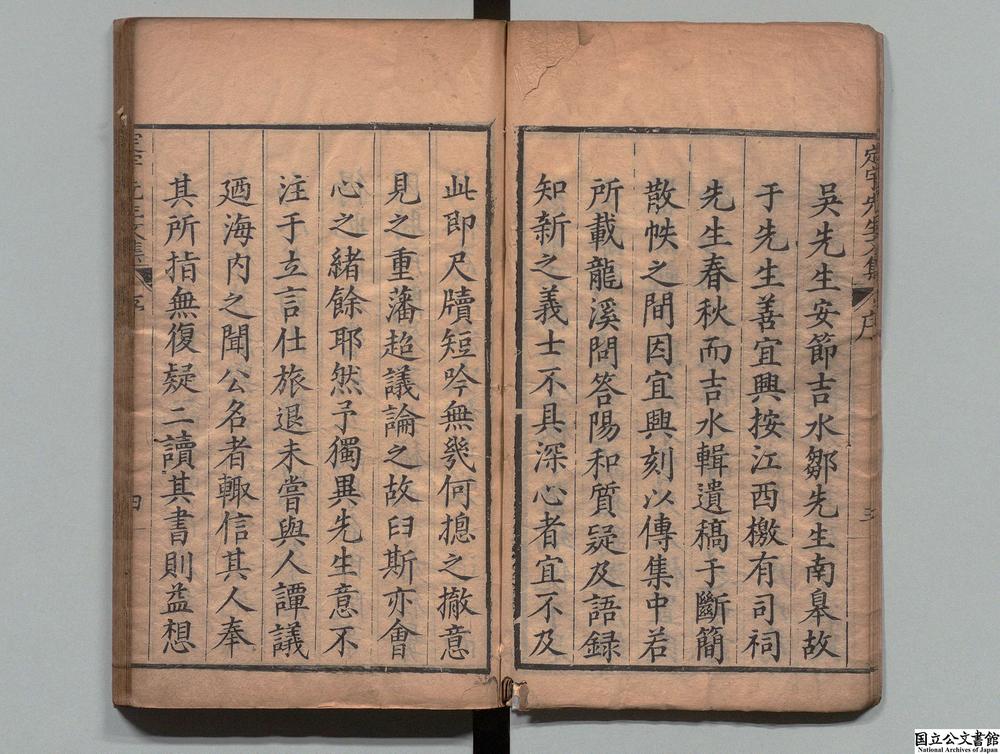 定宇先生文集
序
三
吳先生安節吉水鄒先生南臯故
于先生善宜興按江西檄有司祠
先生春秋而吉水輯遺稿于斷簡
散帙之間因宜興刻以傳集中若
所載龍溪問答陽和質疑及語録
知新之義士不具深心者宜不及
此即尺牘短吟無幾何摠之撤意
見之重藩超議論之故臼斯亦會
心之緒餘耶然予獨異先生意不
注于立言仕旅退未嘗與人譚議
廼海内之聞公名者輙信其人奉
其所指無復疑二讀其書則益想
定宇先生文集
序
四
国立公文書館
National Archives of Japan